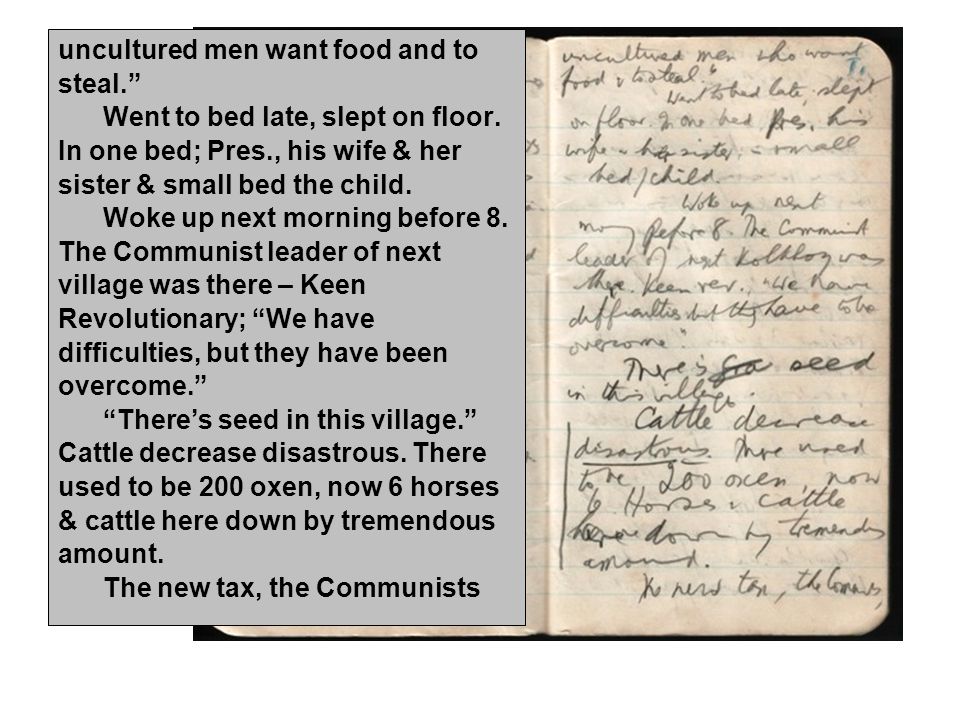 uncultured men want food and to
steal.”
Went to bed late, slept on floor.
In one bed; Pres., his wife & her
sister & small bed the child.
Woke up next morning before 8.
The Communist leader of next
village was there – Keen
Revolutionary; “We have
difficulties, but they have been
overcome.”
“There’s seed in this village.”
Cattle decrease disastrous. There
used to be 200 oxen, now 6 horses
& cattle here down by tremendous
amount.
The new tax, the Communists
uncultured men who want
food & to steal"
Went to bed late, slept
on floor. In one bed Pres., his
wife & her sister, & small
bed/child.
Woke up next
before 8. The Communist
leader of next Kolkhoz was
there. Keen rev., "We have
difficulties but they have to be
overcome"
There's seed
in this village.
Cattle decrease
disastrous. There used
to be 200 oxen, now
6 Horses & cattle
here down by tremendous
amount.
The new tax, the